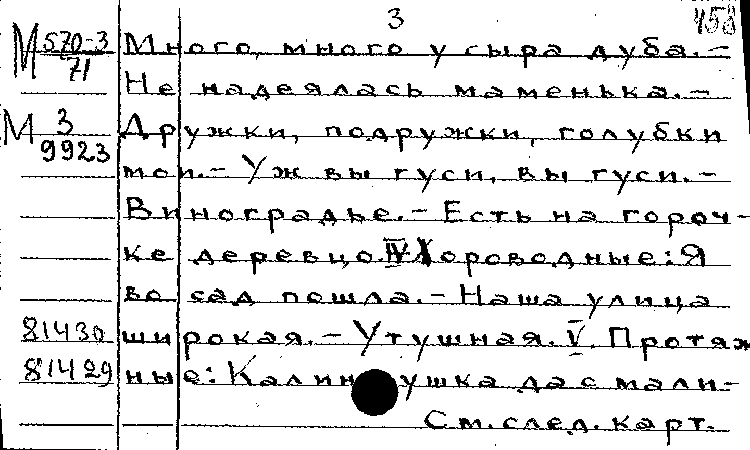 3 453
М 570-3/71 Много, много у сыра дуба.-
Не надеялась маменька.-
М 3/9923 Дружки, подружки, голубки
мои.- Уж вы гуси, вы гуси.-
Виноградье.- Есть на гороч-
ке деревцо. IV Хороводные: Я
во сад пошла.- Наша улица
81430 широкая.- Утушная. V. Протяж
81429 ные: Калинушка да с мали-
См. след. карт.